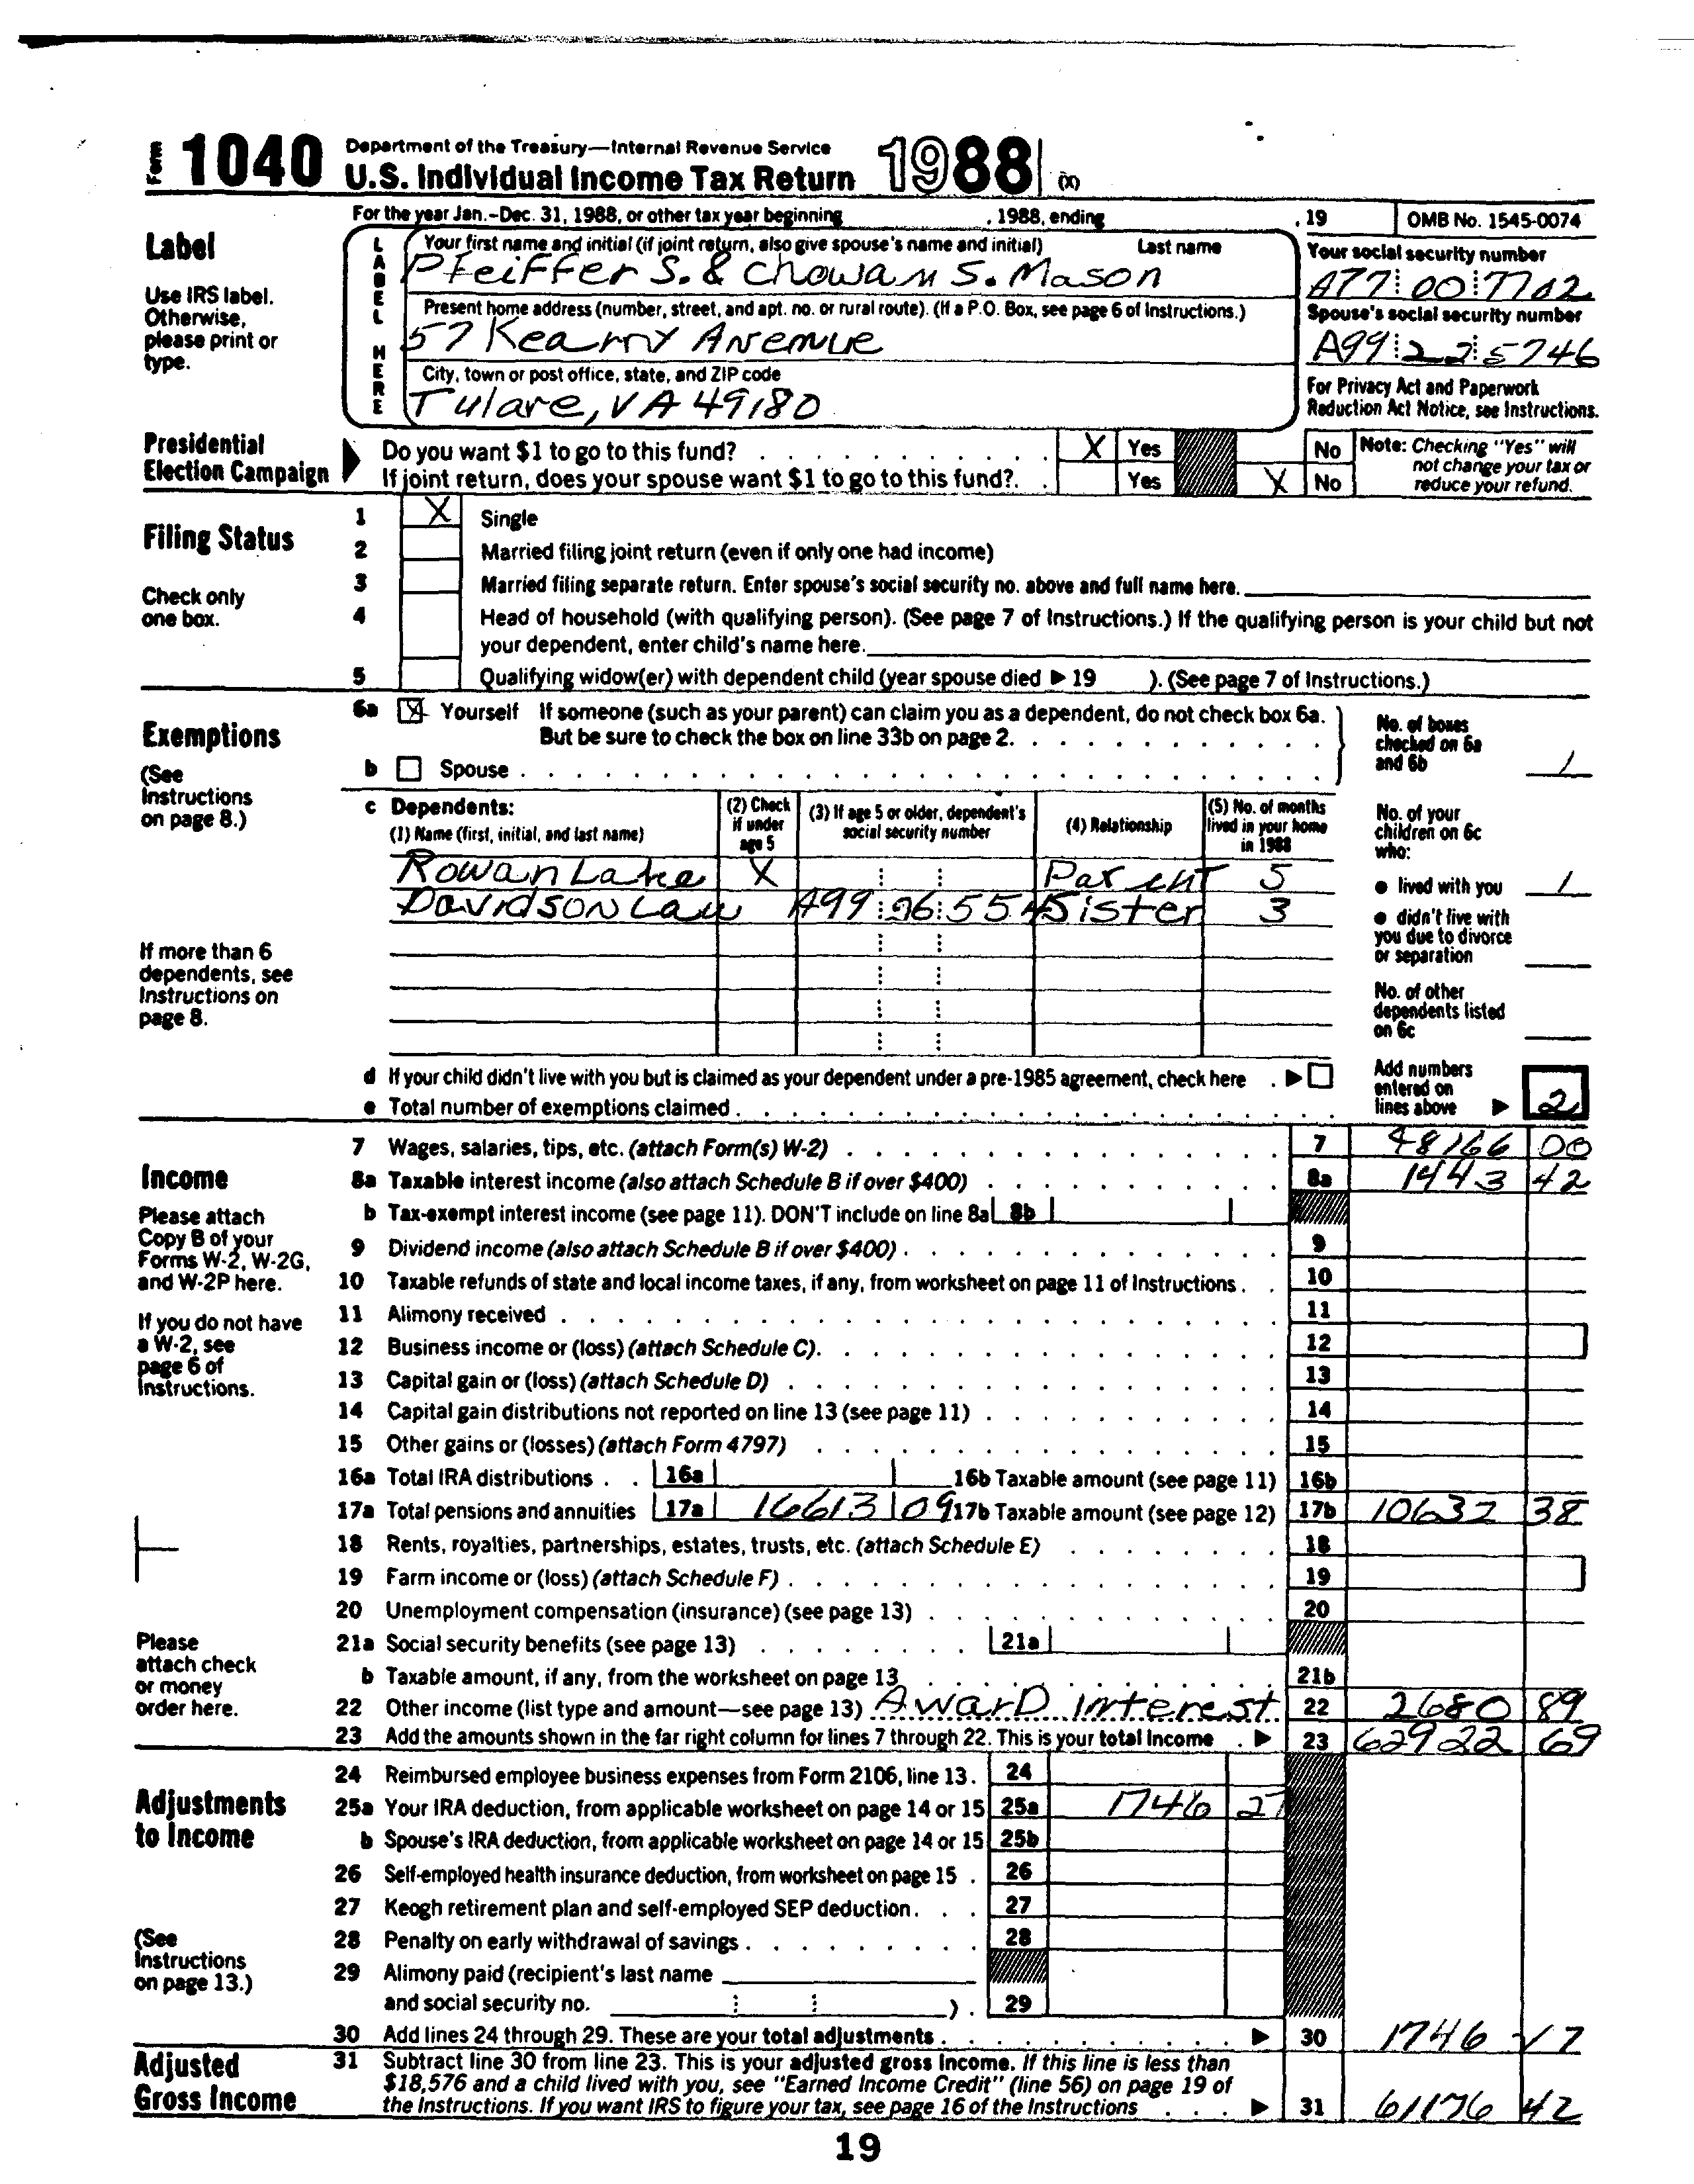 Form 1040 Department of the Treasury—Internal Revenue Service
U.S. Individual Income Tax Return 1988 (X)
For the year Jan.–Dec. 31, 1988, or other tax year beginning , 1988, ending , 19 OMB No. 1545-0074
Label
Use IRS label. Otherwise, please print or type.
LABEL HERE
Your first name and initial (if joint return, also give spouse's name and initial) Last name
Pfeiffer S. & Chowan S. Mason
Your social security number
A77 00 7702
Present home address (number, street, and apt. no. or rural route). (If a P.O. Box, see page 6 of Instructions.)
57 Kearny Avenue
Spouse's social security number
A99 22 5746
City, town or post office, state, and ZIP code
Tulare, VA 49180
For Privacy Act and Paperwork Reduction Act Notice, see Instructions.
Presidential Election Campaign
Do you want $1 to go to this fund? X Yes No
If joint return, does your spouse want $1 to go to this fund?. Yes X No
Note: Checking "Yes" will not change your tax or reduce your refund.
Filing Status
Check only one box.
1 X Single
2 Married filing joint return (even if only one had income)
3 Married filing separate return. Enter spouse's social security no. above and full name here.
4 Head of household (with qualifying person). (See page 7 of Instructions.) If the qualifying person is your child but not
your dependent, enter child's name here.
5 Qualifying widow(er) with dependent child (year spouse died ▶ 19 ). (See page 7 of Instructions.)
Exemptions
(See Instructions on page 8.)
6a X Yourself If someone (such as your parent) can claim you as a dependent, do not check box 6a.
But be sure to check the box on line 33b on page 2.
b Spouse
No. of boxes checked on 6a and 6b 1
c Dependents:
(1) Name (first, initial, and last name) (2) Check if under age 5 (3) If age 5 or older, dependent's social security number (4) Relationship (5) No. of months lived in your home in 1988
Rowan Lake X Parent 5
Davidson Law A99 96 5545 Sister 3
No. of your children on 6c who:
● lived with you 1
● didn't live with you due to divorce or separation
No. of other dependents listed on 6c
If more than 6 dependents, see Instructions on page 8.
d If your child didn't live with you but is claimed as your dependent under a pre-1985 agreement, check here ▶
e Total number of exemptions claimed
Add numbers entered on lines above ▶ 2
Income
Please attach Copy B of your Forms W-2, W-2G, and W-2P here.
If you do not have a W-2, see page 6 of Instructions.
Please attach check or money order here.
7 Wages, salaries, tips, etc. (attach Form(s) W-2) 7 48166 00
8a Taxable interest income (also attach Schedule B if over $400) 8a 1443 42
b Tax-exempt interest income (see page 11). DON'T include on line 8a 8b
9 Dividend income (also attach Schedule B if over $400) 9
10 Taxable refunds of state and local income taxes, if any, from worksheet on page 11 of Instructions 10
11 Alimony received 11
12 Business income or (loss) (attach Schedule C) 12
13 Capital gain or (loss) (attach Schedule D) 13
14 Capital gain distributions not reported on line 13 (see page 11) 14
15 Other gains or (losses) (attach Form 4797) 15
16a Total IRA distributions 16a 16b Taxable amount (see page 11) 16b
17a Total pensions and annuities 17a 16613 09 17b Taxable amount (see page 12) 17b 10632 38
18 Rents, royalties, partnerships, estates, trusts, etc. (attach Schedule E) 18
19 Farm income or (loss) (attach Schedule F) 19
20 Unemployment compensation (insurance) (see page 13) 20
21a Social security benefits (see page 13) 21a
b Taxable amount, if any, from the worksheet on page 13 21b
22 Other income (list type and amount—see page 13) Award interest 22 2680 89
23 Add the amounts shown in the far right column for lines 7 through 22. This is your total income ▶ 23 62922 69
Adjustments to Income
(See Instructions on page 13.)
24 Reimbursed employee business expenses from Form 2106, line 13. 24
25a Your IRA deduction, from applicable worksheet on page 14 or 15 25a 1746 27
b Spouse's IRA deduction, from applicable worksheet on page 14 or 15 25b
26 Self-employed health insurance deduction, from worksheet on page 15 26
27 Keogh retirement plan and self-employed SEP deduction 27
28 Penalty on early withdrawal of savings 28
29 Alimony paid (recipient's last name
and social security no. ) 29
30 Add lines 24 through 29. These are your total adjustments ▶ 30 1746 27
Adjusted Gross Income
31 Subtract line 30 from line 23. This is your adjusted gross income. If this line is less than
$18,576 and a child lived with you, see "Earned Income Credit" (line 56) on page 19 of
the Instructions. If you want IRS to figure your tax, see page 16 of the Instructions ▶ 31 61176 42
19